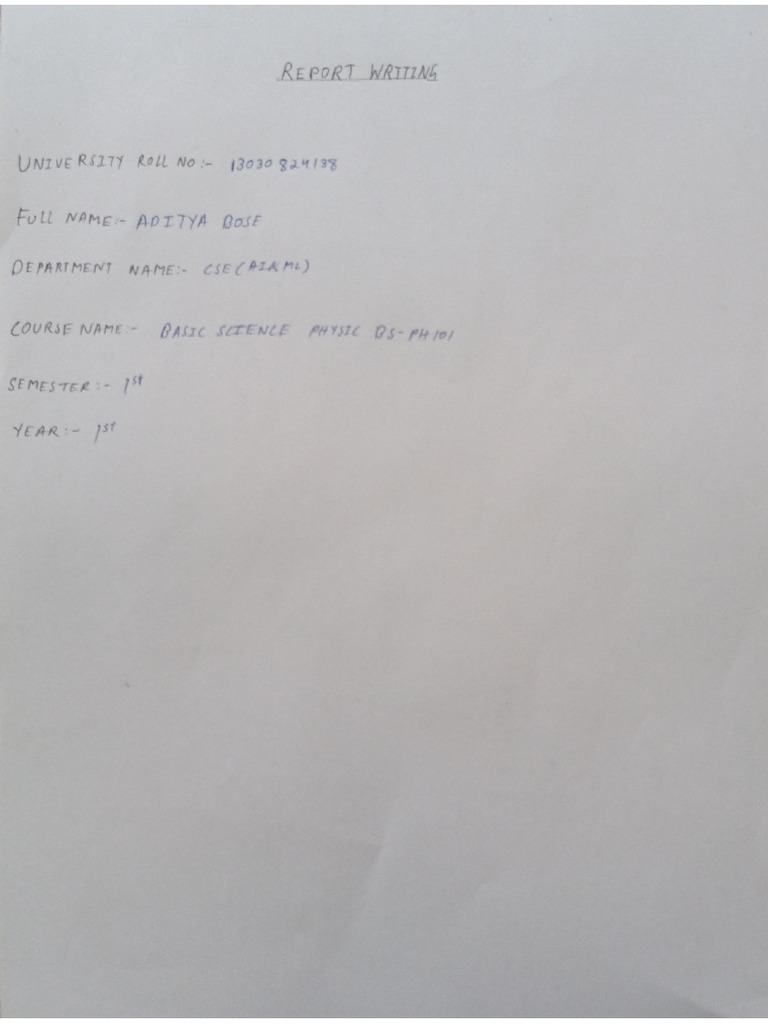 REPORT WRITING
UNIVERSITY ROLL NO:- 13030824138
FULL NAME:- ADITYA BOSE
DEPARTMENT NAME:- CSE(AI&ML)
COURSE NAME:- BASIC SCIENCE PHYSIC BS-PH101
SEMESTER:- 1st
YEAR:- 1st